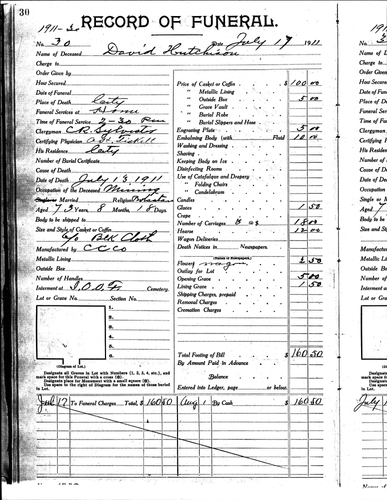 30
1911-30
RECORD OF FUNERAL.
No. 30
July 17 1911
Name of Deceased David Hutchison
Charge to
Order Given by
How Secured
Date of Funeral
Place of Death City
Funeral Services at Home
Time of Funeral Service 2-30 Pm
Clergyman C.R. Sylvester
Certifying Physician
His Residence City
Number of Burial Certificate
Cause of Death
Date of Death July 13, 1911
Occupation of the Deceased Mining
Single or Married Religion
Aged 73 Years 8 Months 18 Days
Body to be shipped to
Size and Style of Casket or Coffin
6/0 Blk Cloth
Manufactured by C C Co
Metallic Lining
Outside Box
Number of Handles
Interment at I.O.O.F. Cemetery.
Lot or Grave No. Section No.
1.
2.
3.
4.
5.
6.
(Diagram of Lot.)
Designate all Graves in Lot with Numbers (1, 2, 3, 4, etc.), and mark space for this Funeral with a cross (
Designate place for Monument with a small square
Use space to the right of Diagram for the names of those buried in Lot.
Price of Casket or Coffin $ 100 00
" Metallic Lining
" Outside Box 5 00
" Grave Vault
" Burial Robe
Burial Slippers and Hose
Engraving Plate 5 00
Embalming Body (with Fluid) 10 00
Washing and Dressing
Shaving
Keeping Body on Ice
Disinfecting Rooms
Use of Catafalque and Drapery
" Folding Chairs
" Candelabrum
Candles
Gloves 1 50
Crape
Number of Carriages 18 00
Hearse 12 00
Wagon Deliveries
Death Notices in Newspapers.
(Names of Newspapers.)
Flowers 2 50
Outlay for Lot
Opening Grave 5 00
Lining Grave 1 50
Shipping Charges, prepaid
Removal Charges
Cremation Charges
Total Footing of Bill $ 160 50
By Amount Paid in Advance
Balance
Entered into Ledger, page or below.
Jul 17 To Funeral Charges Total, $ 160 50 Aug 1 By Cash $ 160 50